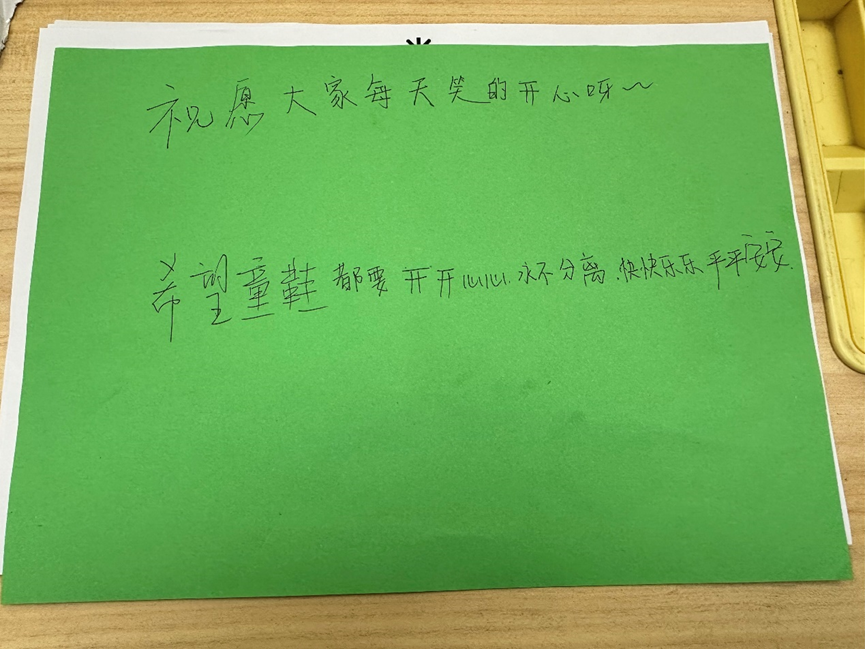 祝愿大家每天笑的开心呀～
希望童鞋都要开开心心.永不分离.快快乐乐平平安安.